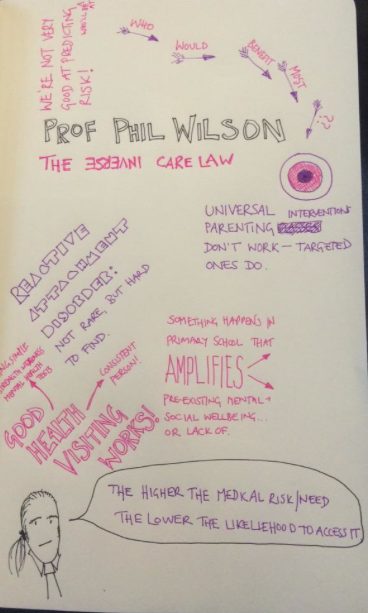 WE'RE NOT VERY
GOOD AT PREDICTING
RISK!
WHO
WOULD
BENEFIT
MOST
?
PROF PHIL WILSON
THE INVERSE CARE LAW
UNIVERSAL INTERVENTIONS
PARENTING
DON'T WORK — TARGETED
ONES DO.
REACTIVE
ATTACHMENT
DISORDER:
NOT RARE, BUT HARD
TO FIND.
SOMETHING HAPPENS IN
PRIMARY SCHOOL THAT
AMPLIFIES
PRE-EXISTING MENTAL +
SOCIAL WELLBEING...
OR LACK OF.
MENTAL HEALTH
CONSISTENT
PERSON!
GOOD
HEALTH
VISITING
WORKS!
THE HIGHER THE MEDICAL RISK/NEED
THE LOWER THE LIKELIEHOOD TO ACCESS IT